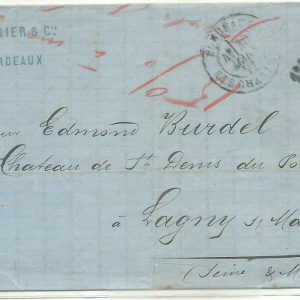 NIER & Cie
RDEAUX
Edmond Burdel
Chateau de St Denis du Po
à Lagny s/ Ma
(Seine & M